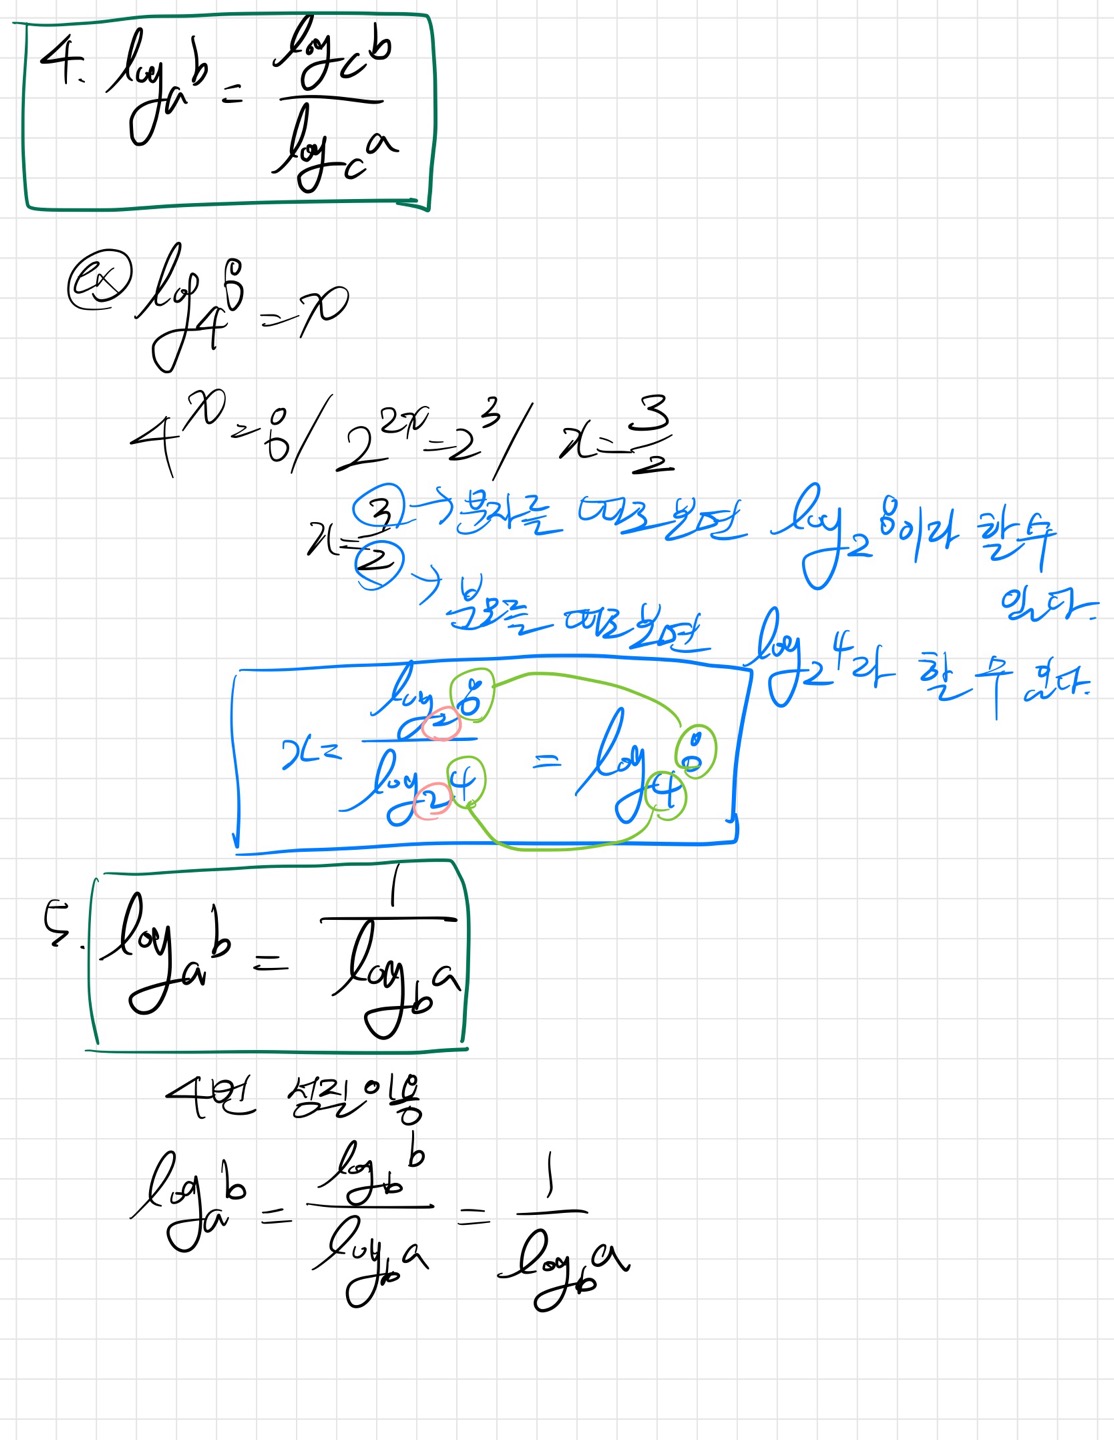 4. log_a b = log_c b / log_c a
ex log_4 8 = x
4^x = 8 / 2^2x = 2^3 / x = 3/2
x = 3/2
3 → 분자를 따로보면 log_2 8이라 할수
있다.
2 → 분모를 따로보면 log_2 4라 할 수 있다.
x = log_2 8 / log_2 4 = log_4 8
5. log_a b = 1 / log_b a
4번 성질이용
log_a b = log_b b / log_b a = 1 / log_b a